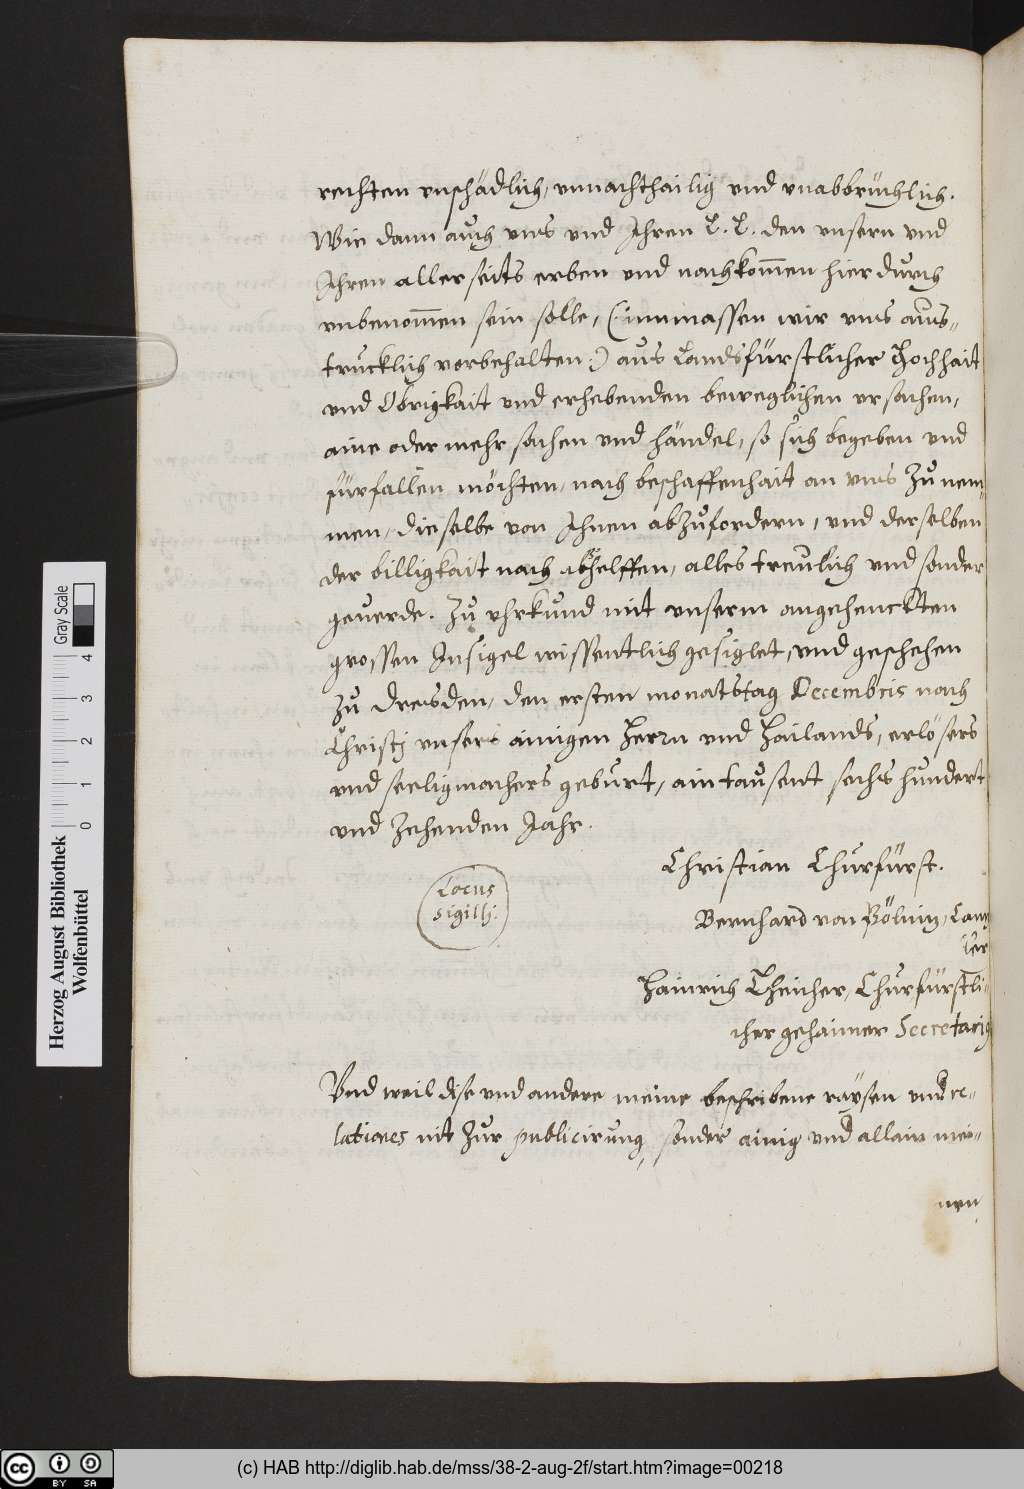 rechten vnschädlich, vnnachthailig vnd vnabbrüchlich.
Wie dann auch vns vnd Ihren L. L. den vnsern vnd
Ihren allerseits erben vnd nachkom̄en hierdurch
vnbenom̄en sein solle, (: inmassen wir vns aus-
trucklich vorbehalten :) aus Landsfürstlicher Hochhait
vnd Obrigkait vnd erhebenden beweglichen vrsachen,
aine oder mehr sachen vnd händel, so sich begeben vnd
fürfallen möchten, nach beschaffenhait an vns zu nem-
men, dieselbe von Ihnen abzufordern, vnd derselben
der billigkait nach abzhelffen, alles treulich vnd sonder
geuerde. Zu vhrkund mit vnserm angehenckten
grossen Insigel wissentlich gesiglet, vnd geschehen
zu Dresden, den ersten monatstag Decembris nach
Christj vnsers ainigen Herrn vnd Hailands, erlösers
vnd seeligmachers geburt, ain tausent sechs hundert
vnd zehenden Jahr.
Christian Churfürst.
Locus
sigillj.
Bernhard von Pölniz, Canz
ler
Hainrich Theicher, Churfürstli-
cher gehaimer Secretarig
Vnd weil dise vnd andere meine beschribene raÿsen vnd re-
lationes nit zur publicirung, sonder ainig vnd allain mei-
nen
Herzog August Bibliothek
Wolfenbüttel
0 1 2 3 4
Gray Scale
(c) HAB http://diglib.hab.de/mss/38-2-aug-2f/start.htm?image=00218
cc BY SA